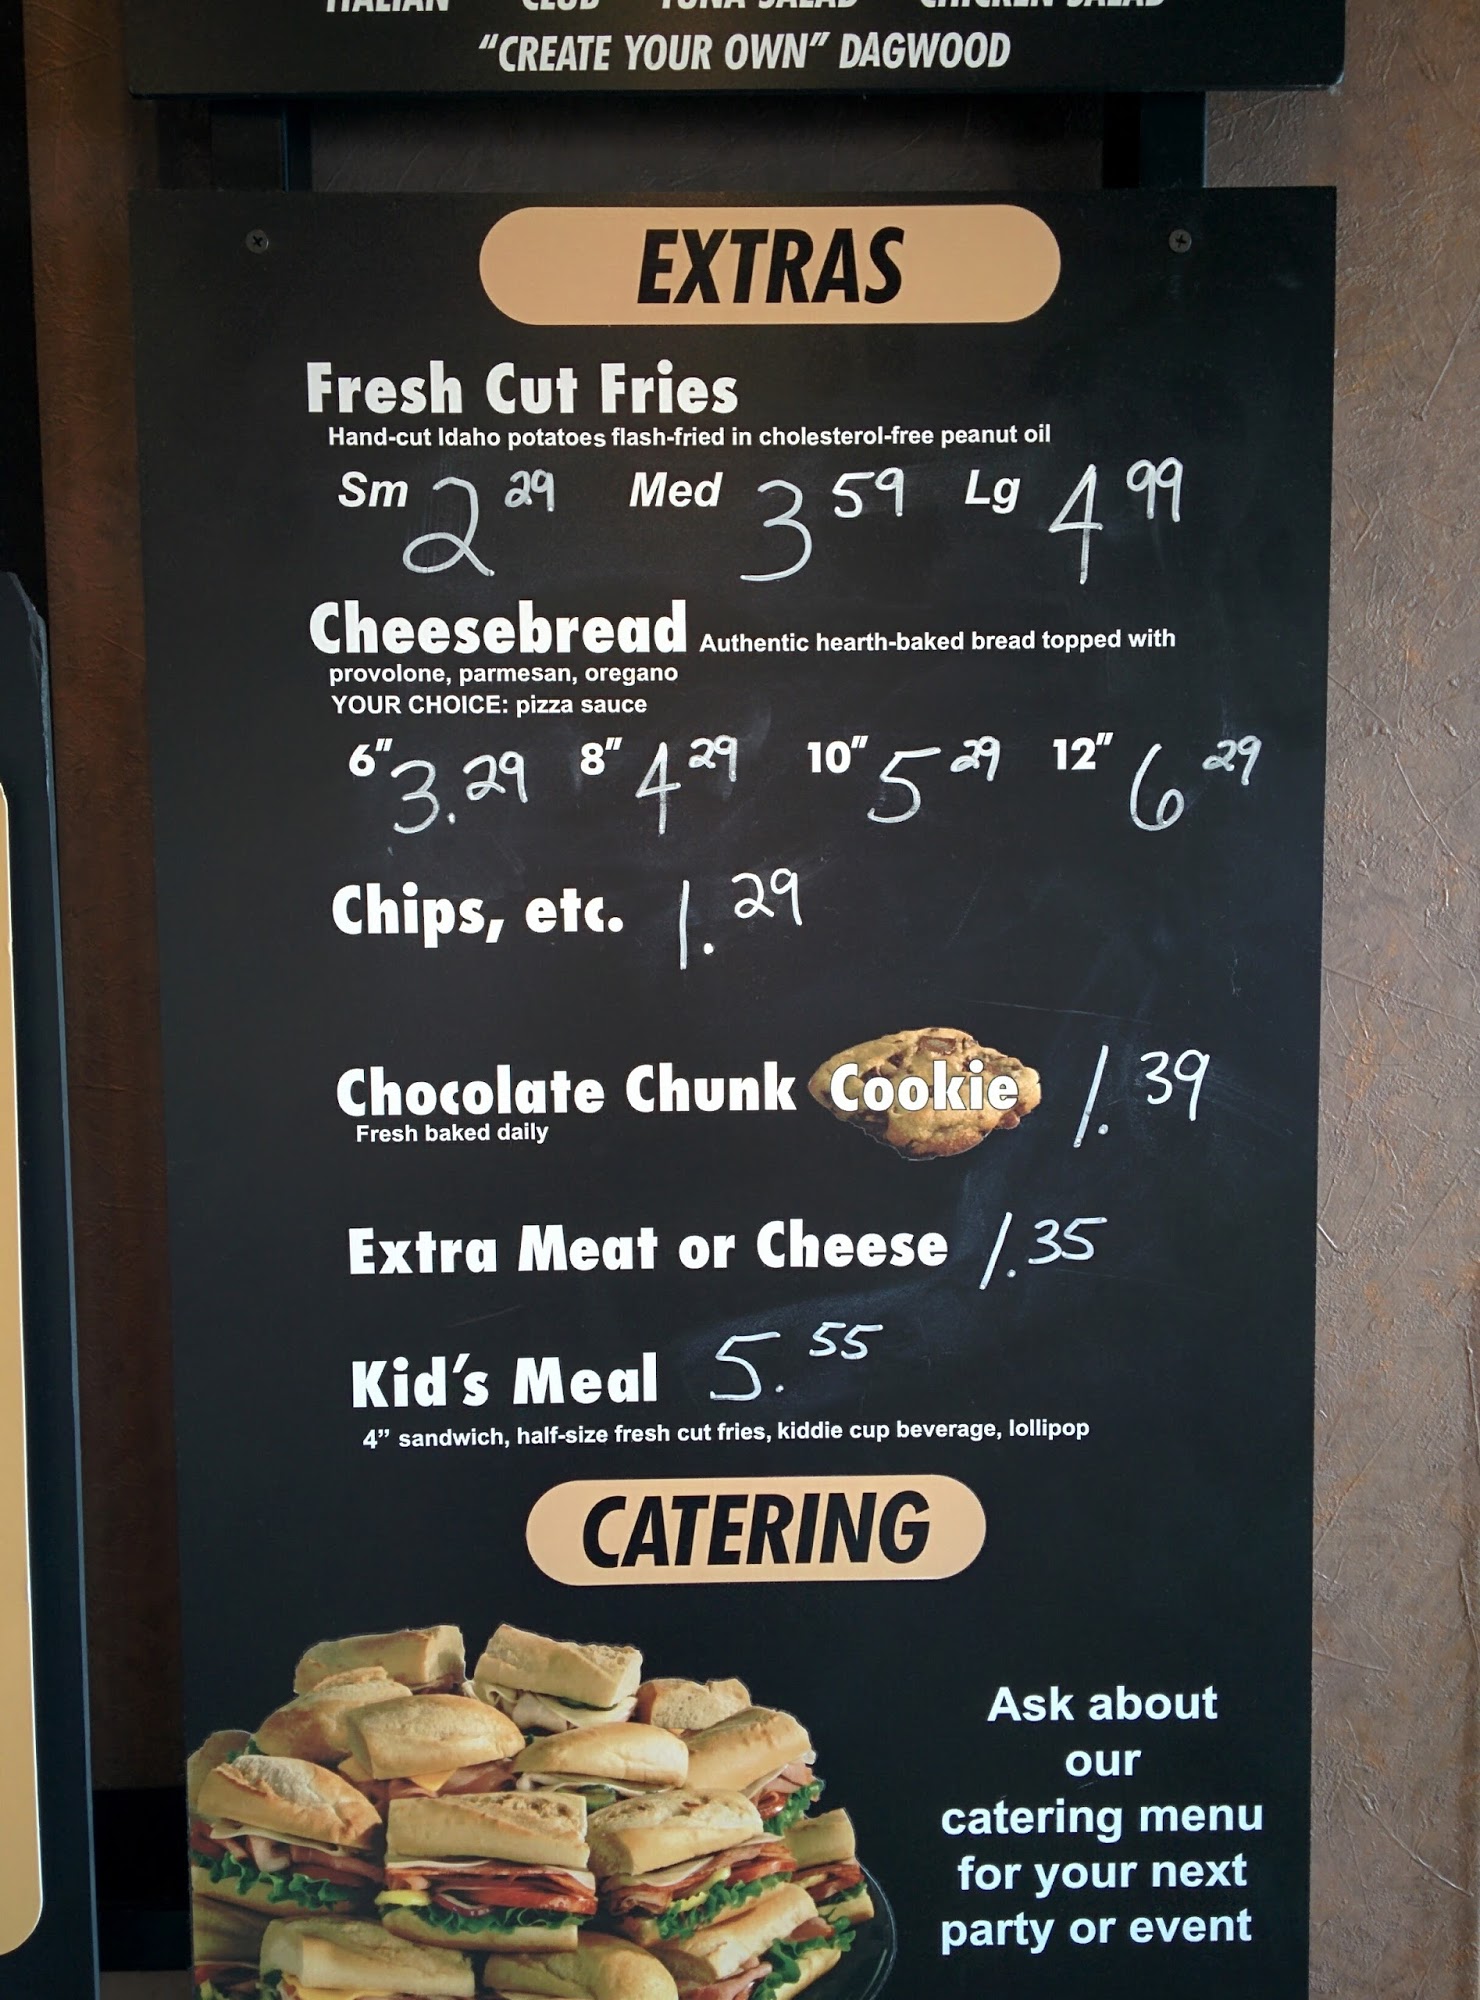 ITALIAN CLUB TUNA SALAD CHICKEN SALAD
"CREATE YOUR OWN" DAGWOOD
EXTRAS
Fresh Cut Fries
Hand-cut Idaho potatoes flash-fried in cholesterol-free peanut oil
Sm 2 29 Med 3 59 Lg 4 99
Cheesebread Authentic hearth-baked bread topped with
provolone, parmesan, oregano
YOUR CHOICE: pizza sauce
6" 3.29 8" 4 29 10" 5 29 12" 6 29
Chips, etc. 1.29
Chocolate Chunk Cookie 1.39
Fresh baked daily
Extra Meat or Cheese 1.35
Kid's Meal 5.55
4" sandwich, half-size fresh cut fries, kiddie cup beverage, lollipop
CATERING
Ask about
our
catering menu
for your next
party or event